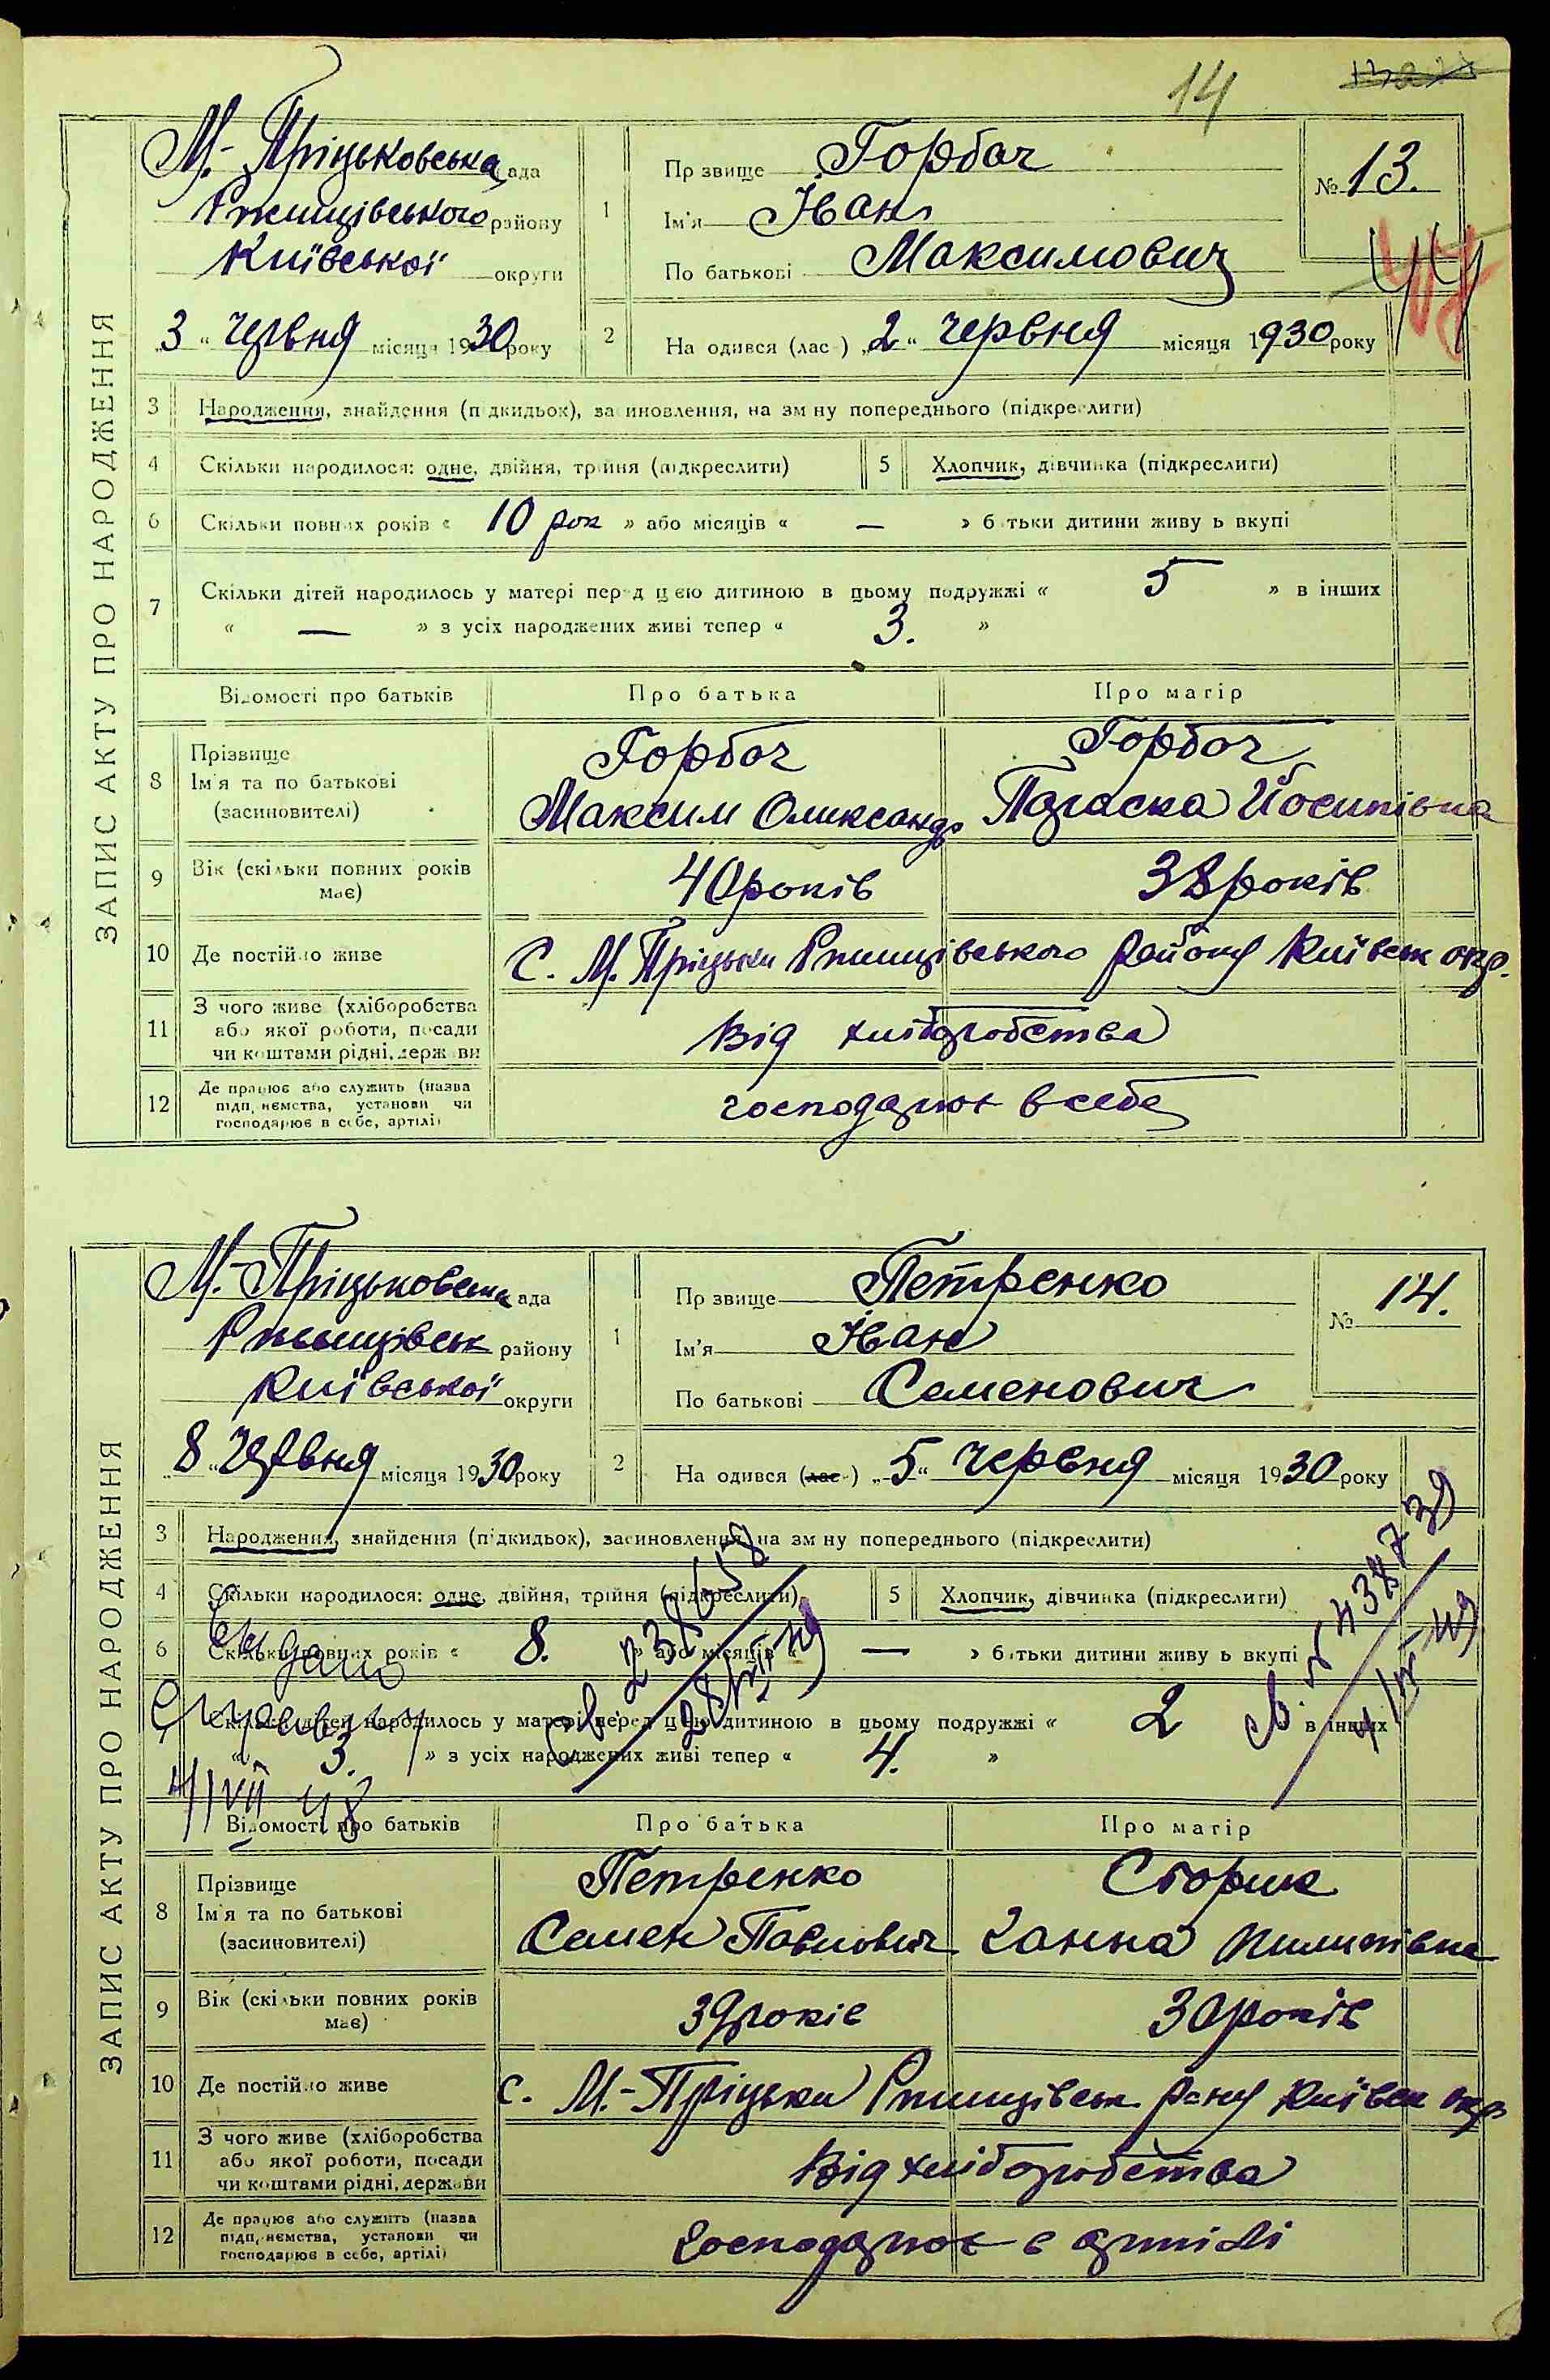 14
ЗАПИС АКТУ ПРО НАРОДЖЕННЯ
М.-Пріцьковська ада
Ржищівського району
Київської округи
„3“ червня місяця 1930 року
1
Пр звище Горбач
Ім'я Іван
По батькові Максимович
№ 13.
2
На одився (лас ) „2“ червня місяця 1930 року
3 Народження, знайдення (п дкидьок), за иновлення, на зм ну попереднього (підкреслити)
4 Скільки народилося: одне, двійня, трійня (підкреслити)
5 Хлопчик, дівчинка (підкреслити)
6 Скільки повних років « 10 рок » або місяців « — » б тьки дитини живу ь вкупі
7 Скільки дітей народилось у матері перед цією дитиною в цьому подружжі « 5 » в інших
« — » з усіх народжених живі тепер « 3. »
Відомості про батьків Про батька Про матір
8 Прізвище
Ім'я та по батькові
(засиновителі)
Горбач
Максим Олександ
Горбач
Параска Йосипівна
9 Вік (скільки повних років
має)
40 років 38 років
10 Де постійно живе С. М. Пріцьки Ржищівського району Київськ окр.
11 З чого живе (хліборобства
або якої роботи, посади
чи коштами рідні, держ ви
Від хліборобства
12 Де працює або служить (назва
підп ємства, установи чи
господарює в себе, артілі)
господарює в себе
ЗАПИС АКТУ ПРО НАРОДЖЕННЯ
М.-Пріцьковська ада
Ржищівськ району
Київської округи
„8“ червня місяця 1930 року
1
Пр звище Петренко
Ім'я Іван
По батькові Семенович
№ 14.
2
На одився (лас ) „5“ червня місяця 1930 року
3 Народження, знайдення (підкидьок), засиновлення, на зм ну попереднього (підкреслити)
4 Скільки народилося: одне, двійня, трійня (підкреслити)
5 Хлопчик, дівчинка (підкреслити)
6 Скільки повних років « 8. » або місяців « — » б тьки дитини живу ь вкупі
7 Скільки дітей народилось у матері перед цією дитиною в цьому подружжі « 2 » в інших
« 3. » з усіх народжених живі тепер « 4. »
4/VII 48
Відомості про батьків Про батька Про матір
8 Прізвище
Ім'я та по батькові
(засиновителі)
Петренко
Семен Павлович
Сторик
Ганна Пилипівна
9 Вік (скільки повних років
має)
39 років 30 років
10 Де постійно живе с. М.-Пріцьки Ржищівськ. р-ну Київськ окр
11 З чого живе (хліборобства
або якої роботи, посади
чи коштами рідні, держави
Від хліборобства
12 Де працює або служить (назва
підп ємства, установи чи
господарює в себе, артілі)
Господарює в артілі